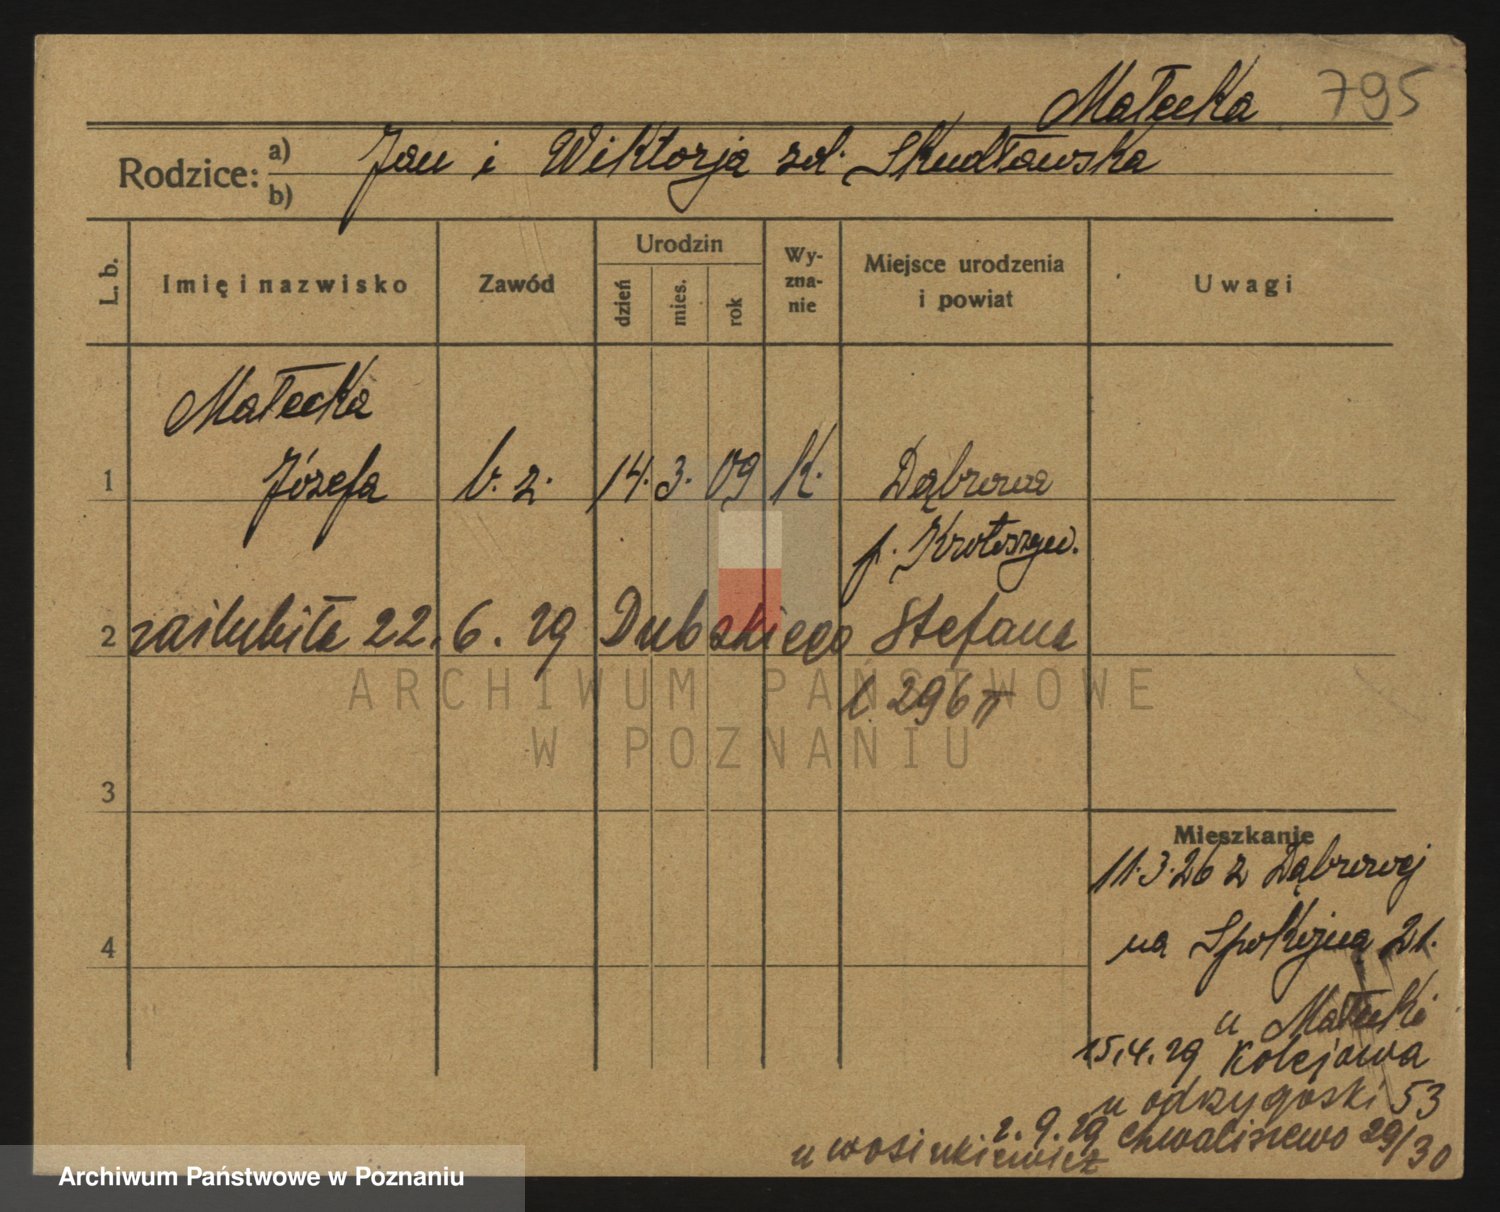 Małecka 795
Rodzice: a) Jan i Wiktorja zd. Skudławska
b)
L. b. Imię i nazwisko Zawód Urodzin dzień mies. rok Wyznanie Miejsce urodzenia i powiat Uwagi
Małecka
1 Józefa b. z. 14. 3. 09 K. Dąbrowa
p. Krotoszyn.
2 zaślubiła 22. 6. 29 Dubskiego Stefana
l. 296
ARCHIWUM PAŃSTWOWE
W POZNANIU
3
Mieszkanie
11.3.26 z Dąbrowej
4 na Spokojną 21.
u Małecki
15.4.29 Kolejowa
u odrzygoski 53
2. 9. 29 chwaliszewo 29/30
u wosinkiewicz
Archiwum Państwowe w Poznaniu